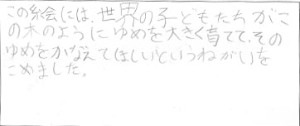 この絵には、世界の子どもたちがこ
の木のようにゆめを大きく育てて、その
ゆめをかなえてほしいというねがいを
こめました。